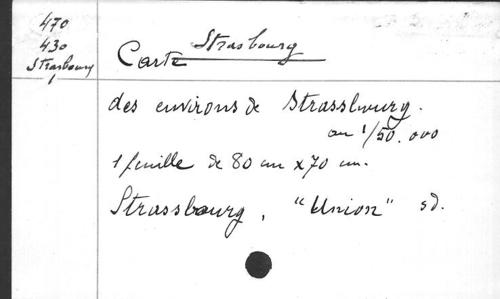 470
430
Strasbourg
1
Strasbourg
Carte
des environs de Strassbourg.
au 1/50.000
1 feuille de 80 cm x 70 cm.
Strassbourg, "Union" sd.